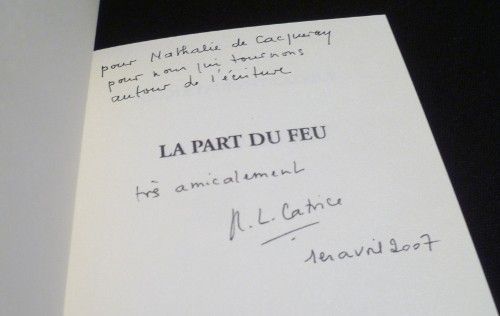 pour Nathalie de Cacqueray
pour nous qui tournons
autour de l'écriture
LA PART DU FEU
très amicalement
R. L. Catrice
1er avril 2007